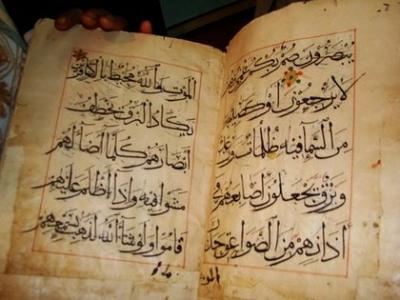 يبصرون صم بكم عمى فهم
لا يرجعون او كصيب
من السماء فيه ظلمات ورعد
وبرق يجعلون اصابعهم فى
اذانهم من الصواعق حذر
الموت
الموت والله محيط بالكافرين
يكاد البرق يخطف
ابصارهم كلما اضاء لهم
مشوا فيه واذا اظلم عليهم
قاموا ولو شاء الله لذهب بسمعهم